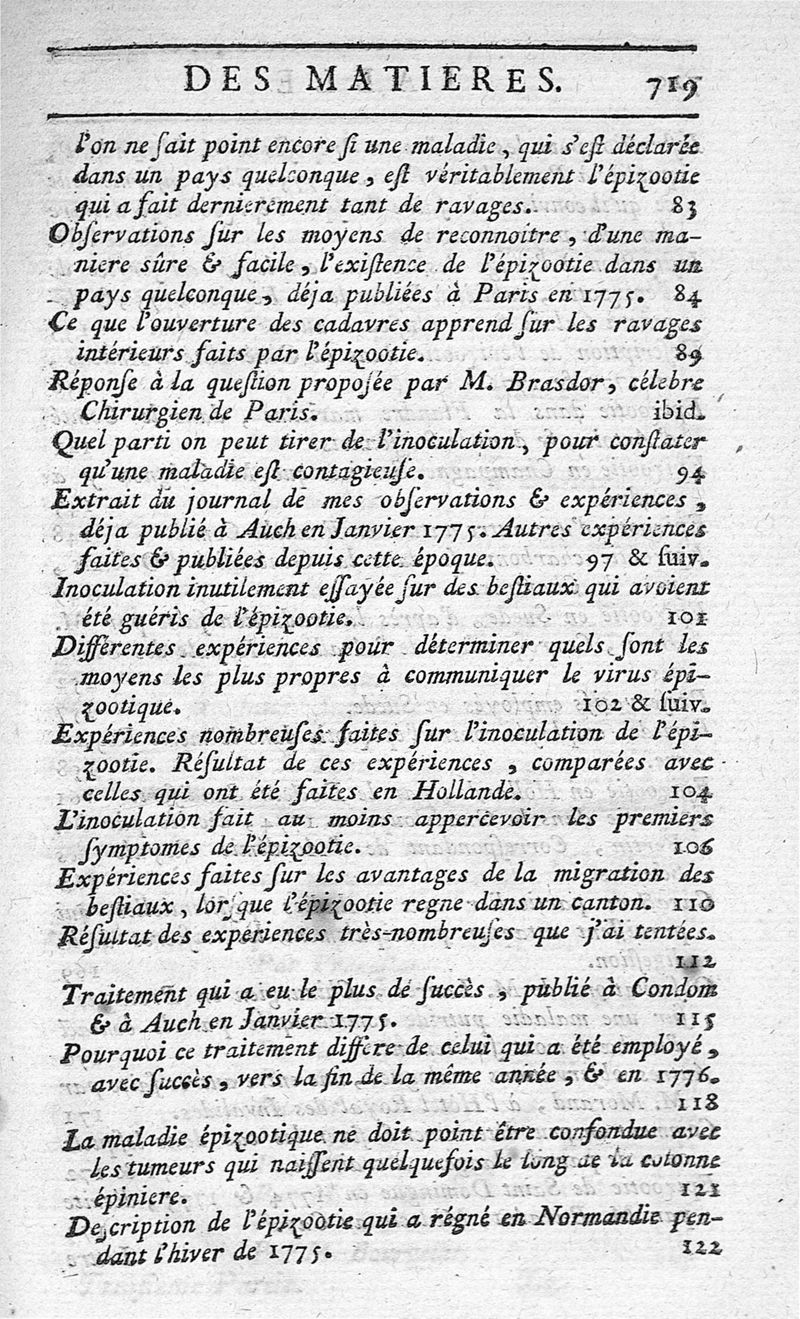 DES MATIERES. 719
l'on ne ſait point encore ſi une maladie, qui s'eſt déclarée
dans un pays quelconque, eſt véritablement l'épizootie
qui a fait dernierement tant de ravages. 83
Obſervations ſur les moyens de reconnoitre, d'une ma-
niere sûre & facile, l'exiſtence de l'épizootie dans un
pays quelconque, déja publiées à Paris en 1775. 84
Ce que l'ouverture des cadavres apprend ſur les ravages
intérieurs faits par l'épizootie. 89
Réponſe à la queſtion propoſée par M. Brasdor, célebre
Chirurgien de Paris. ibid.
Quel parti on peut tirer de l'inoculation, pour conſtater
qu'une maladie eſt contagieuſe. 94
Extrait du journal de mes obſervations & expériences,
déja publié à Auch en Janvier 1775. Autres expériences
faites & publiées depuis cette époque. 97 & ſuiv.
Inoculation inutilement eſſayée ſur des beſtiaux qui avoient
été guéris de l'épizootie. 101
Différentes expériences pour déterminer quels ſont les
moyens les plus propres à communiquer le virus épi-
zootique. 102 & ſuiv.
Expériences nombreuſes faites ſur l'inoculation de l'épi-
zootie. Réſultat de ces expériences, comparées avec
celles qui ont été faites en Hollande. 104
L'inoculation fait au moins appercevoir les premiers
ſymptomes de l'épizootie. 106
Expériences faites ſur les avantages de la migration des
beſtiaux, lorſque l'épizootie regne dans un canton. 110
Réſultat des expériences très-nombreuſes que j'ai tentées.
112
Traitement qui a eu le plus de ſuccès, publié à Condom
& à Auch en Janvier 1775. 115
Pourquoi ce traitement differe de celui qui a été employé,
avec ſuccès, vers la fin de la même année, & en 1776.
118
La maladie épizootique ne doit point être confondue avec
les tumeurs qui naiſſent quelquefois le long de la colonne
épiniere. 121
Deſcription de l'épizootie qui a régné en Normandie pen-
dant l'hiver de 1775. 122